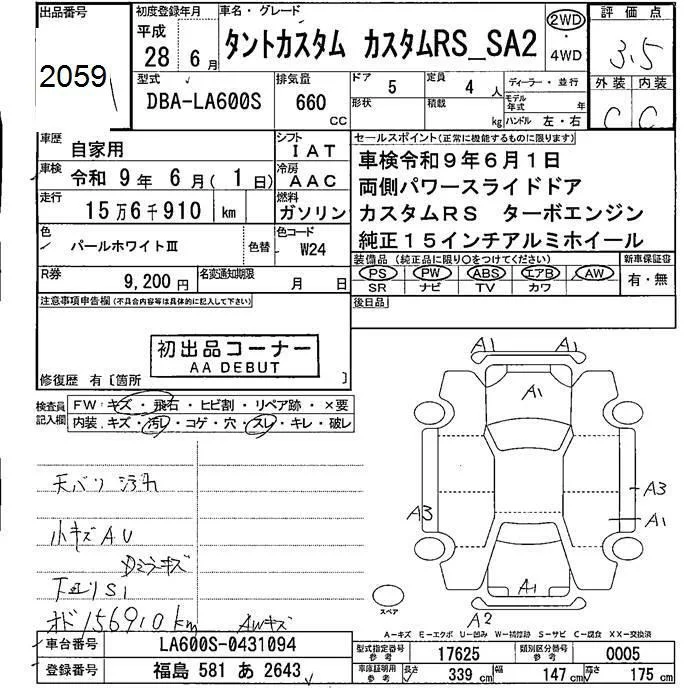 出品番号
2059
初度登録年月
平成
28 年 6 月
車名・グレード
タントカスタム カスタムRS_SA2
2WD
・
4WD
評価点
3.5
外装 内装
C C
型式
DBA-LA600S
排気量
660 CC
ドア 5
形状
定員 4 人
積載 kg
ディーラー・並行
モデル年式 年
ハンドル 左・右
車歴 自家用
シフト IAT
車検 令和 9 年 6 月 ( 1 日)
冷房 AAC
走行 15万6千910 km
燃料 ガソリン
色 パールホワイトⅢ 色替
色コード W24
R券 9,200 円
名変通知期限 月 日
セールスポイント(正常に機能するものに限ります)
車検令和9年6月1日
両側パワースライドドア
カスタムRS ターボエンジン
純正15インチアルミホイール
装備品 (純正品に限り○をつけてください)
新車保証書
PS PW ABS エアB AW
SR ナビ TV カワ
有・無
後日品
注意事項申告欄(不具合内容等は具体的に記入して下さい)
初出品コーナー
AA DEBUT
修復歴 有〔箇所 〕
検査員記入欄
FW:キズ・飛石・ヒビ割・リペア跡・×要
内装:キズ・汚レ・コゲ・穴・スレ・キレ・破レ
天バリ汚れ
小キズAU
Dミラーキズ
下回りS1
オド156910km AWキズ
A1 A1
A1
A3
A3
A1
A1
A2
スペア
A-キズ E-エクボ U-凹み W-補修跡 S-サビ C-腐食 XX-交換済
車台番号 LA600S-0431094
登録番号 福島 581 あ 2643
型式指定番号 参考 17625
類別区分番号 参考 0005
車庫証明用 参考 長さ 339 cm 幅 147 cm 高さ 175 cm